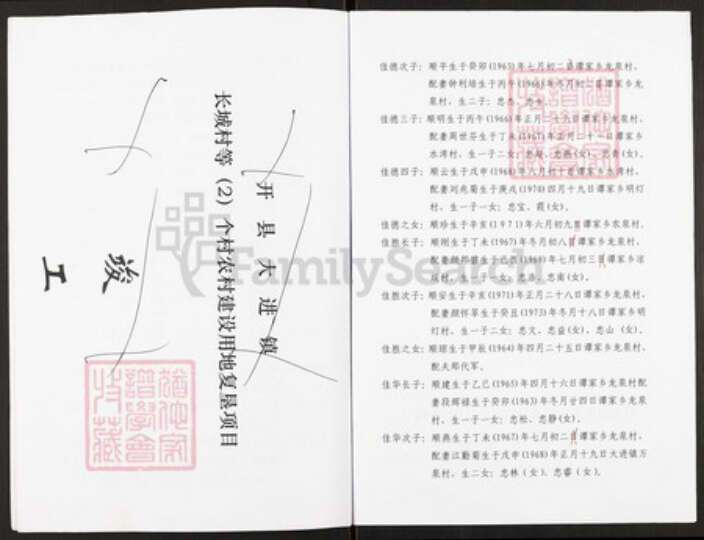 开县大进镇
长城村等（2）个村农村建设用地复垦项目
竣
工
FamilySearch
佳德次子：顺平生于癸卯(1963)年七月初二日谭家乡龙泉村，
配妻钟利培生于丙午(1966)年冬月初二日谭家乡龙
泉村，生二子：忠杰、忠
佳德三子：顺明生于丙午(1966)年正月二十六日谭家乡龙泉村，
配妻周世芬生于丁未(1967)年正月二十一日谭家乡
水湾村，生一子二女：忠 、忠燕(女)、忠青(女)。
佳德四子：顺云生于戊申(1968)年六月初十日谭家乡水湾村，
配妻刘兆菊生于庚戌(1970)四月十九日谭家乡明灯
村，生一子一女：忠宝、霞(女)。
佳德之女：顺珍生于辛亥(1971)年六月初九日谭家乡农泉村。
佳胜长子：顺刚生于丁未(1967)年冬月初八日谭家乡龙泉村，
配妻 生于己酉(1969)年七月初三日谭家乡凉
垭村，生一子一女：忠 、忠南(女)。
佳胜次子：顺安生于辛亥(1971)年正月二十八日谭家乡龙泉村，
配妻颜怀翠生于癸丑(1973)年冬月十八日谭家乡明
灯村，生一子二女：忠文、忠益(女)、忠山（女)。
佳胜之女：顺琼生于甲辰(1964)年四月二十五日谭家乡龙泉村，
配夫郑代军。
佳华长子：顺建生于乙巳(1965)年四月十六日谭家乡龙泉村配
妻段辉禄生于癸卯(1963)年冬月廿四日谭家乡龙泉
村，生一子一女：忠松、忠静(女)。
佳华次子：顺燕生于丁未(1967)年七月初二日谭家乡龙泉村，
配妻江勤菊生于戊申(1968)年正月十九日大进镇万
泉村，生二女：忠林（女)、忠睿（女)。